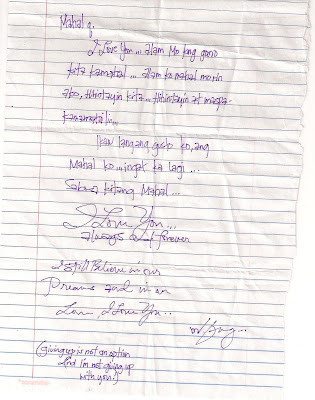 Mahal q,
I Love You... alam Mo kng gano
kita kamahal... alam ko mahal morin
ako, Hihintayin kita... Hihintayin at magpa-
kanamatali...
Ikaw lang ang gusto ko, ang
Mahal ko... ingat ka lagi...
Sobra kitang Mahal...
I Love You...
always and forever
I still Believe in our
Dreams and in our
Love, I Love You..
(Giving up is not an option
And I'm not giving up
with you!)